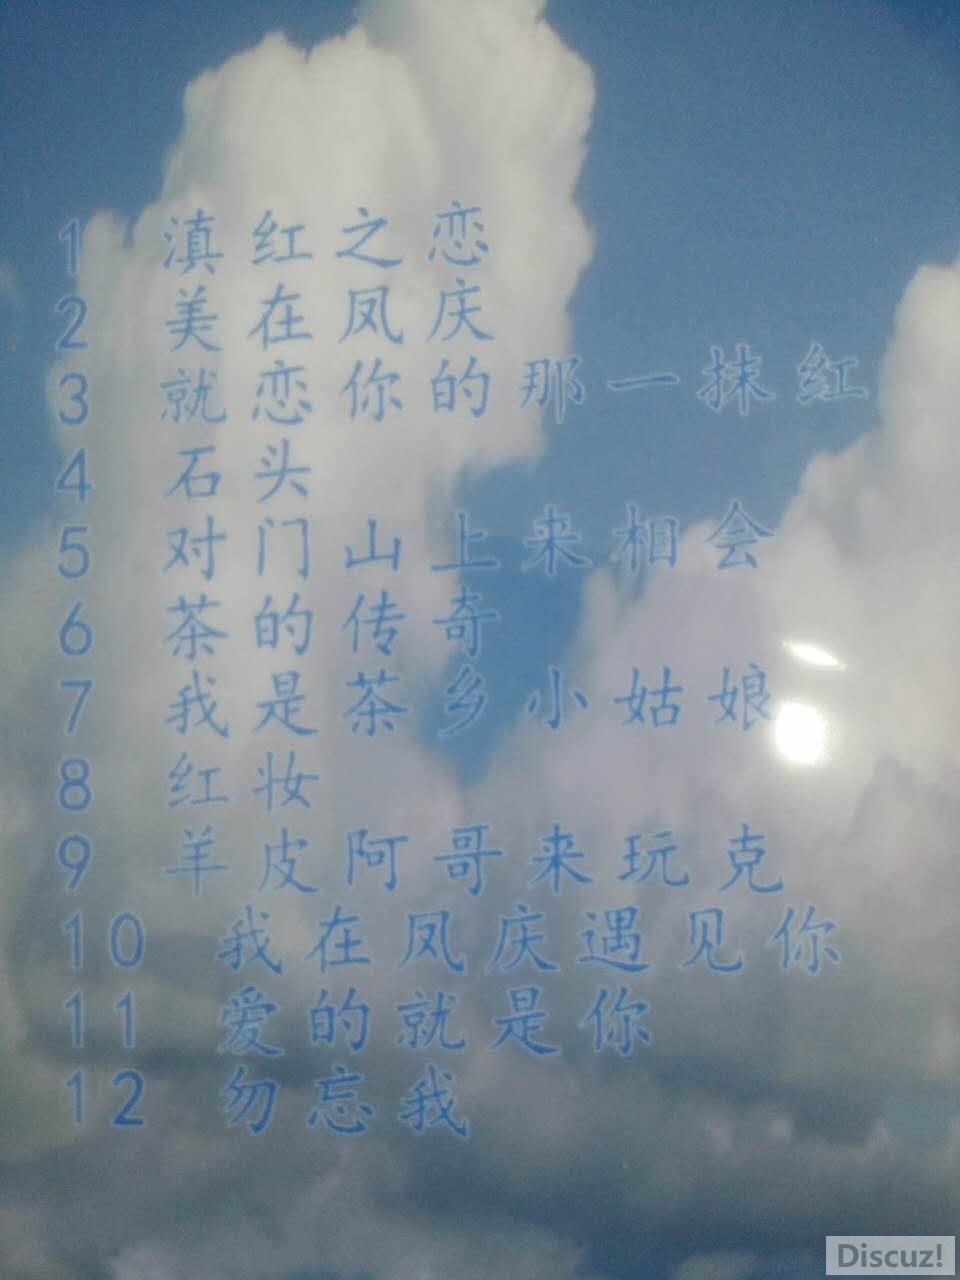 1 滇红之恋
2 美在凤庆
3 就恋你的那一抹红
4 石头
5 对门山上来相会
6 茶的传奇
7 我是茶乡小姑娘
8 红妆
9 羊皮阿哥来玩克
10 我在凤庆遇见你
11 爱的就是你
12 勿忘我
Discuz!